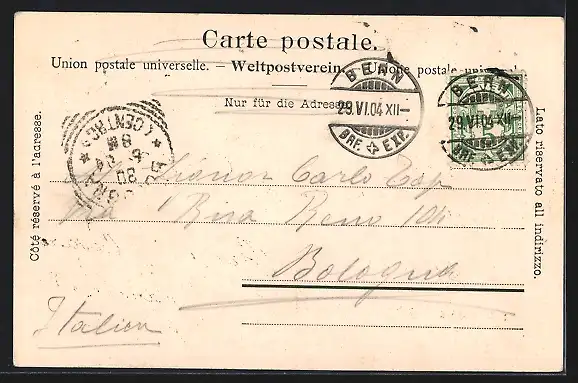 Carte postale.
Union postale universelle. – Weltpostverein. – Unione postale universale.
Nur für die Adresse.
BERN
29.VI.04.XII–
BRF. EXP.
BERN
29.VI.04.XII–
BRF. EXP.
(CENTRO)
8M
6 04
30
Côté réservé à l'adresse.
Lato riservato all indirizzo.
Signor Carlo
Via Riva Reno 104
Bologna
Italien